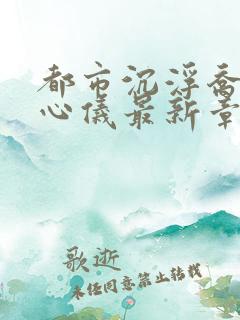 都市沉浮乔
心仪最新章
歌逝
未经同意禁止转载